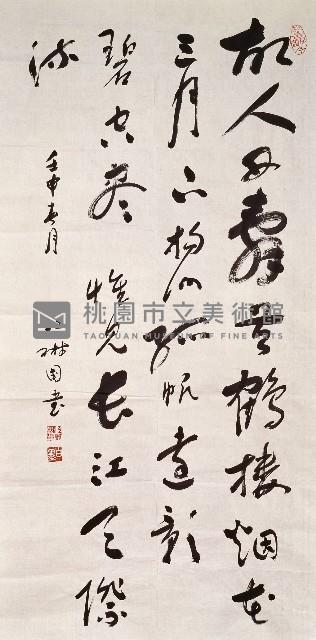 故人西辭黃鶴樓烟花
三月下揚州孤帆遠影
碧空盡惟見長江天際
流
壬申春月
琳園書
桃園市立美術館
TAOYUAN MUSEUM OF FINE ARTS